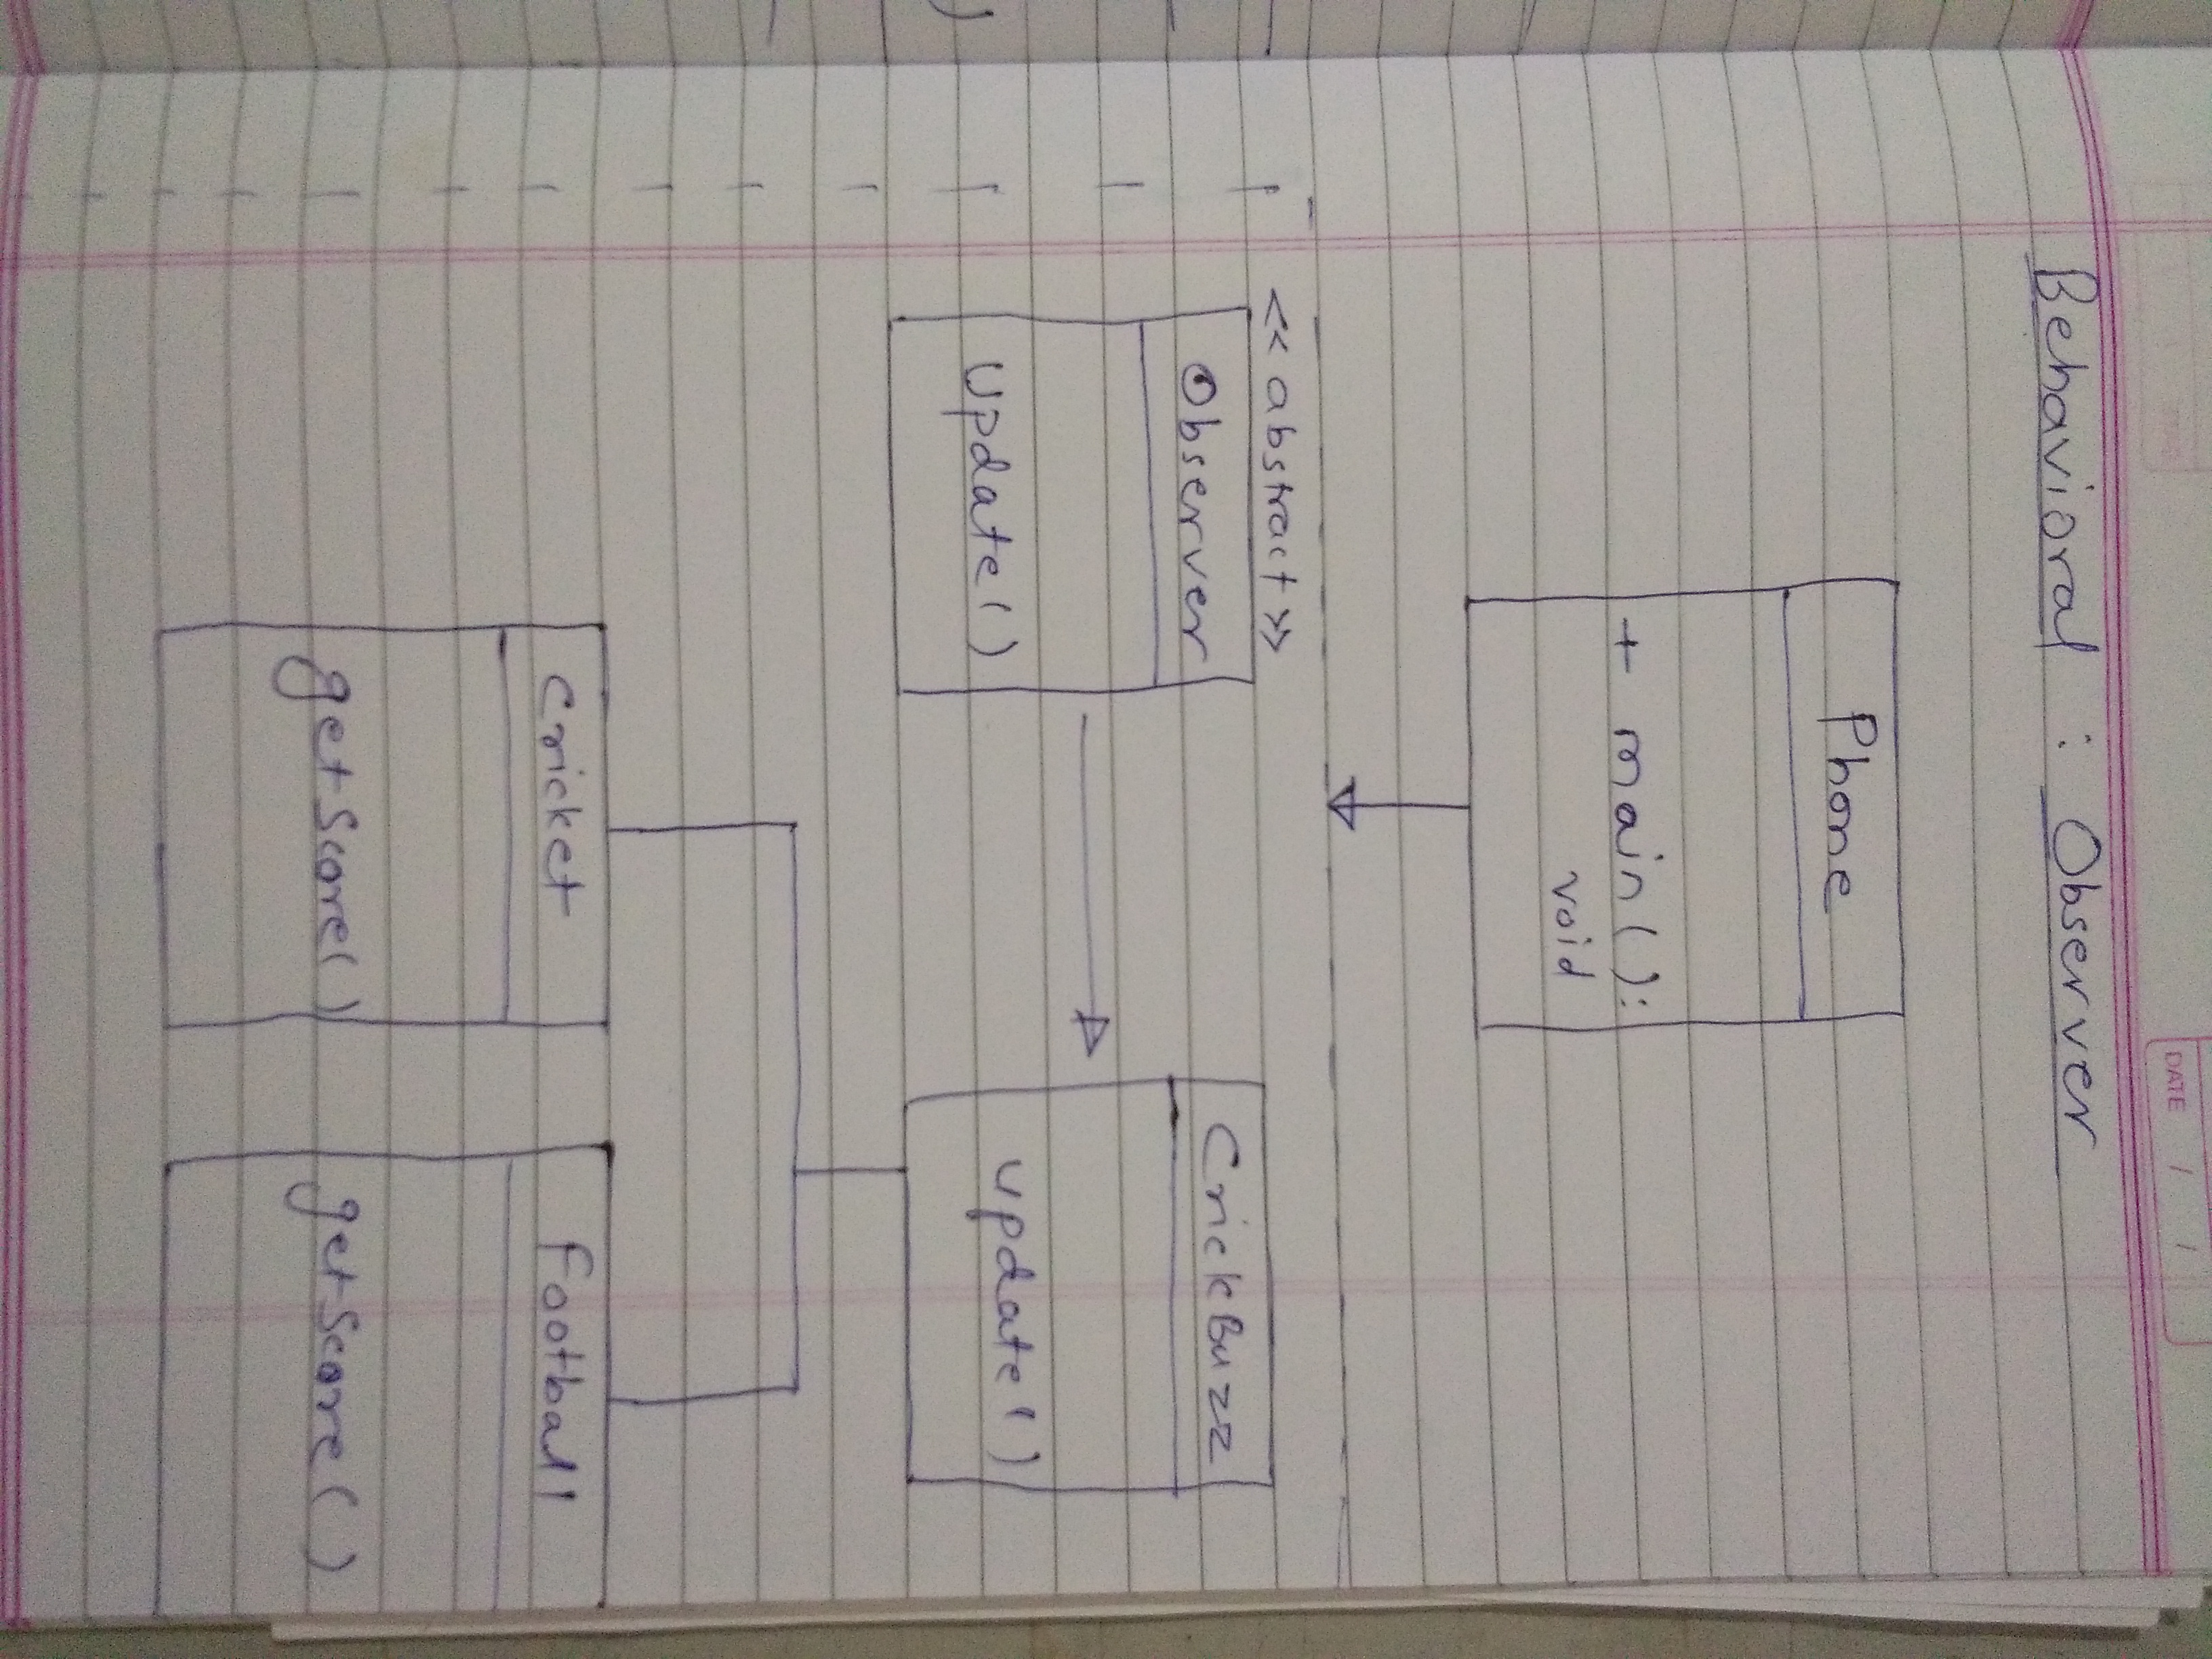 DATE / /
Behavioral : Observer
Phone
+ main():
void
<< abstract >>
Observer
Update()
CrickBuzz
update()
Cricket
getScore()
Football
getScore()